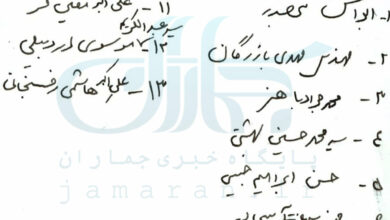 ۱- ابوالحسن بنی صدر
۲- مهندس مهدی بازرگان
۳- محمد جواد باهنر
۴- سید محمد حسینی بهشتی
۵- حسن ابراهیم حبیبی
۱۱- علی
سید عبدالکریم
۱۲- موسوی اردبیلی
۱۳- علی اکبر هاشمی رفسنجانی
جماران
پایگاه خبری جماران
jamaran.ir